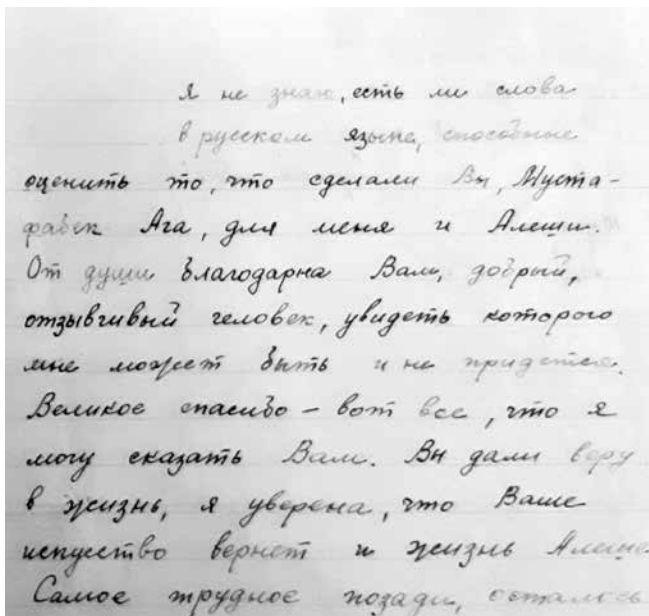 Я не знаю, есть ли слова
в русском языке, способные
оценить то, что сделали Вы, Муста-
фабек Ага, для меня и Алеши.
От души благодарна Вам, добрый,
отзывчивый человек, увидеть которого
мне может быть и не придется.
Великое спасибо – вот все, что я
могу сказать Вам. Вы дали веру
в жизнь, я уверена, что Ваше
искусство вернет и жизнь Алеше
Самое трудное позади, осталось